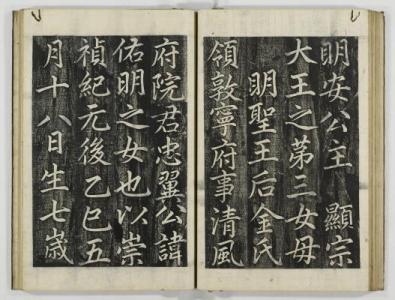 明安公主 顯宗
大王之第三女母
明聖王后金氏
領敦寧府事清風
府院君忠翼公諱
佑明之女也以崇
禎紀元後乙巳五
月十八日生七歲